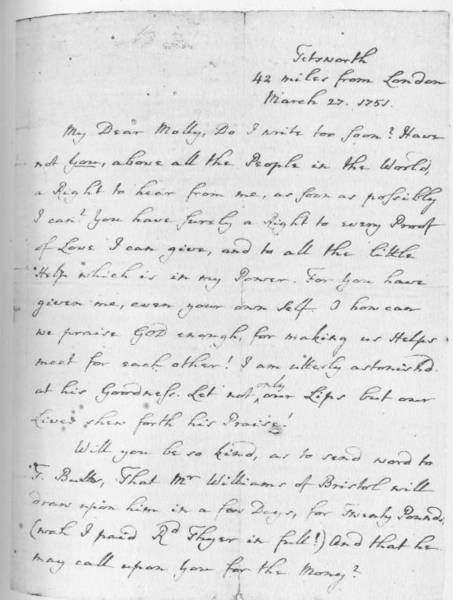 Tetsworth
42 miles from London
March 27. 1751.
My Dear Molly, Do I write too soon? Have
not You, above all the People in the World,
a Right to hear from me, as soon as possibly
I can? You have surely a Right to every Proof
of Love I can give, and to all the little
Help which is in my Power. For you have
given me, even your own Self. O how can
we praise GOD enough, for making us Helps
meet for each other! I am utterly astonish'd
at his Goodness. Let not only our Lips but our
Lives shew forth his Praise!
Will you be so kind, as to send word to
T. Butts, That Mr Williams of Bristol will
draw upon him in a few Days, for Twenty Pounds,
(wch I paid Rd Thyer in full!) And that he
may call upon You for the Money?